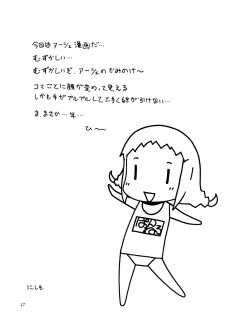 今回はアーシェ漫画だ…
むずかしい…
むずかしいぞ、アーシェのかみのけ〜
コマごとに顔が変わって見える
しかも手がプルプルして上手く線が引けない…
ま、まさか…年…
ひ〜
にしも
27